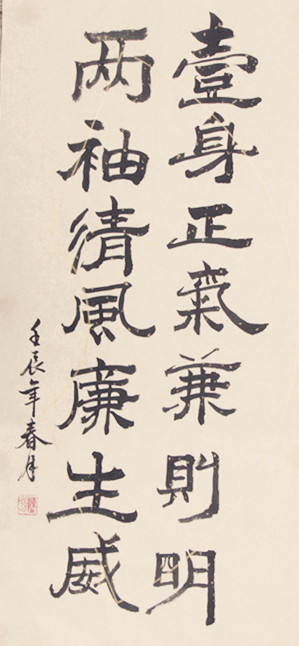 壹身正氣兼則明
两袖清風廉生威
壬辰年春月